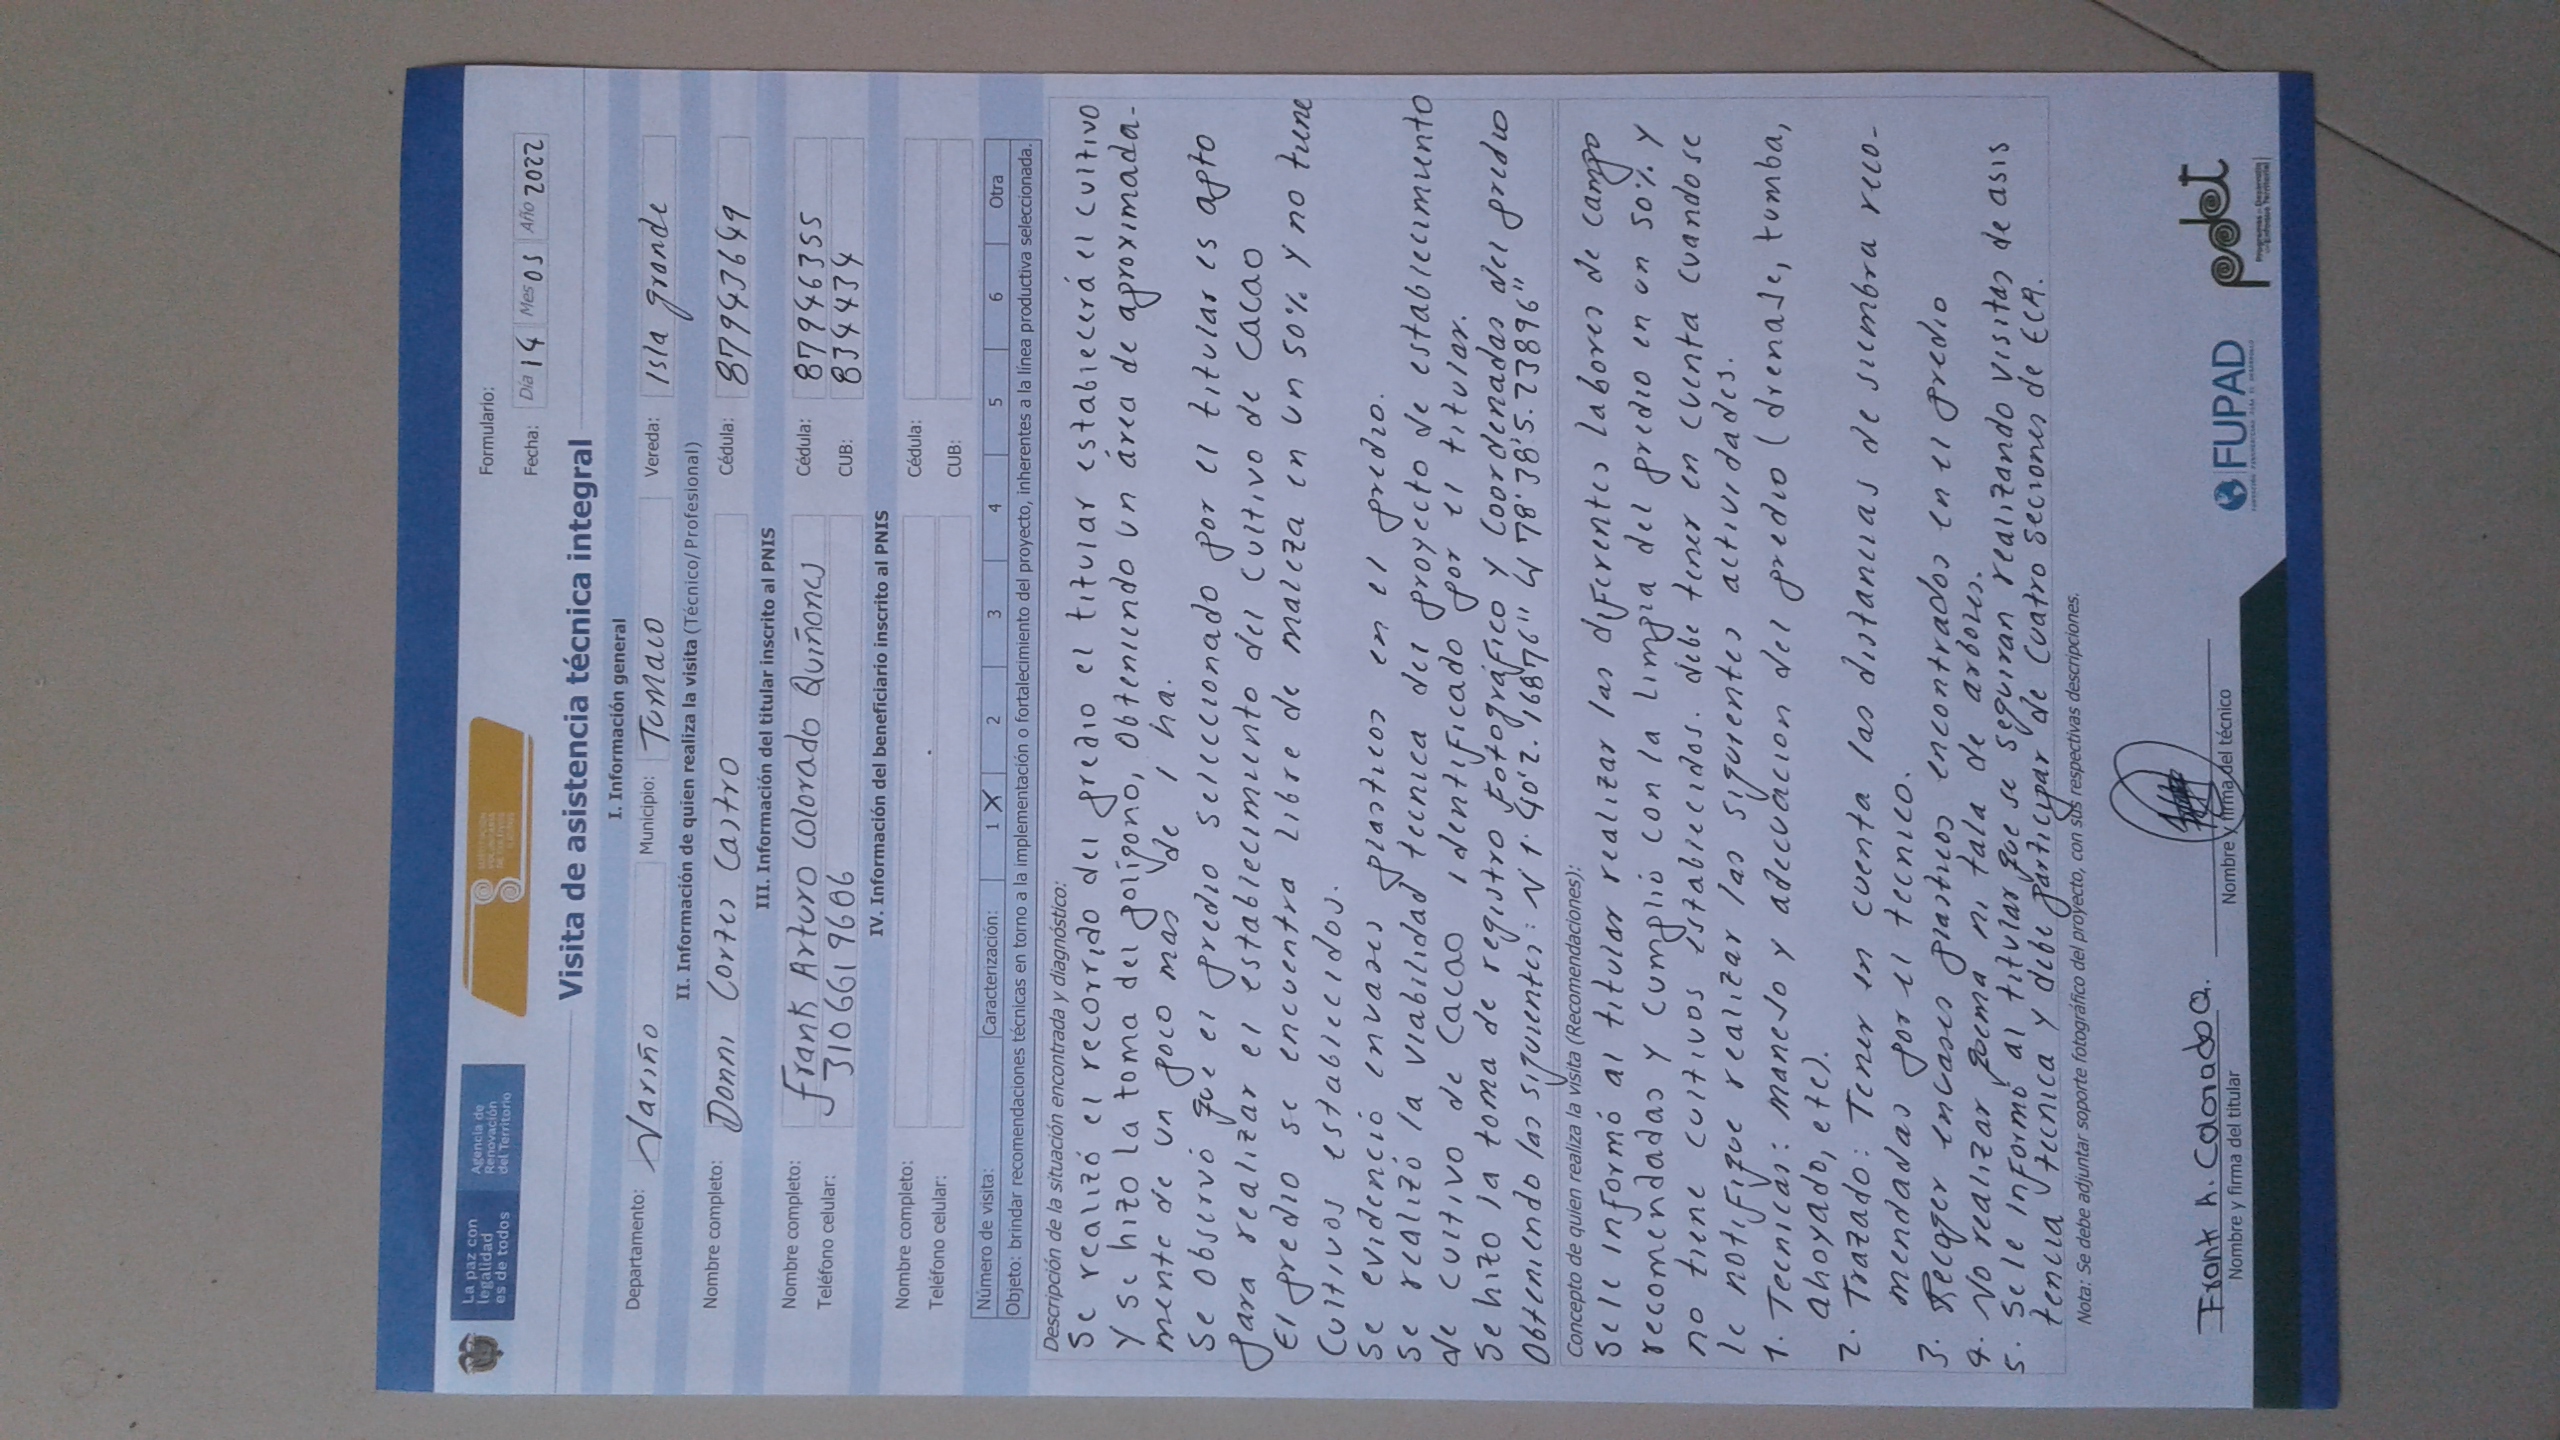 La paz con
legalidad
es de todos
Agencia de
Renovación
del Territorio
Formulario:
Fecha: Día 14 Mes 03 Año 2022
Visita de asistencia técnica integral
I. Información general
Departamento: Nariño Municipio: Tumaco Vereda: Isla grande
II. Información de quien realiza la visita (Técnico/Profesional)
Nombre completo: Donni Cortes Castro Cédula: 87943649
III. Información del titular inscrito al PNIS
Nombre completo: Frank Arturo Colorado Quiñones Cédula: 87946355
Teléfono celular: 3106619606 CUB: 834434
IV. Información del beneficiario inscrito al PNIS
Nombre completo: Cédula:
Teléfono celular: CUB:
Número de visita: Caracterización: 1 X 2 3 4 5 6 Otra
Objeto: brindar recomendaciones técnicas en torno a la implementación o fortalecimiento del proyecto, inherentes a la línea productiva seleccionada.
Descripción de la situación encontrada y diagnóstico:
Se realizó el recorrido del predio el titular establecerá el cultivo
y se hizo la toma del polígono, obteniendo un área de aproximada-
mente de un poco mas de 1 ha.
Se observó que el predio seleccionado por el titular es apto
para realizar el establecimiento del cultivo de cacao
El predio se encuentra libre de maleza en un 50% y no tiene
cultivos establecidos.
Se evidenció envases plasticos en el predio.
Se realizó la viabilidad tecnica del proyecto de establecimiento
de cultivo de cacao identificado por el titular.
Se hizo la toma de registro fotográfico y coordenadas del predio
obteniendo las siguientes: N 1°40'2.16876" W 78°38'5.23896"
Concepto de quien realiza la visita (Recomendaciones):
Se le informó al titular realizar las diferentes labores de campo
recomendadas y cumplió con la limpia del predio en un 50% y
no tiene cultivos establecidos. debe tener en cuenta cuando se
le notifique realizar las siguientes actividades.
1. Tecnicas: manejo y adecuacion del predio (drenaje, tumba,
ahoyado, etc).
2. Trazado: Tener en cuenta las distancias de siembra reco-
mendadas por el tecnico.
3. Recoger envases plasticos encontrados en el predio
4. No realizar quema ni tala de arboles.
5. Se le informó al titular que se seguiran realizando visitas de asis
tencia tecnica y debe participar de cuatro secciones de ECA.
Nota: Se debe adjuntar soporte fotográfico del proyecto, con sus respectivas descripciones.
Frank A. Colorado Q.
Nombre y firma del titular
Nombre y firma del técnico
FUPAD
pdet
Programas de Desarrollo
con Enfoque Territorial